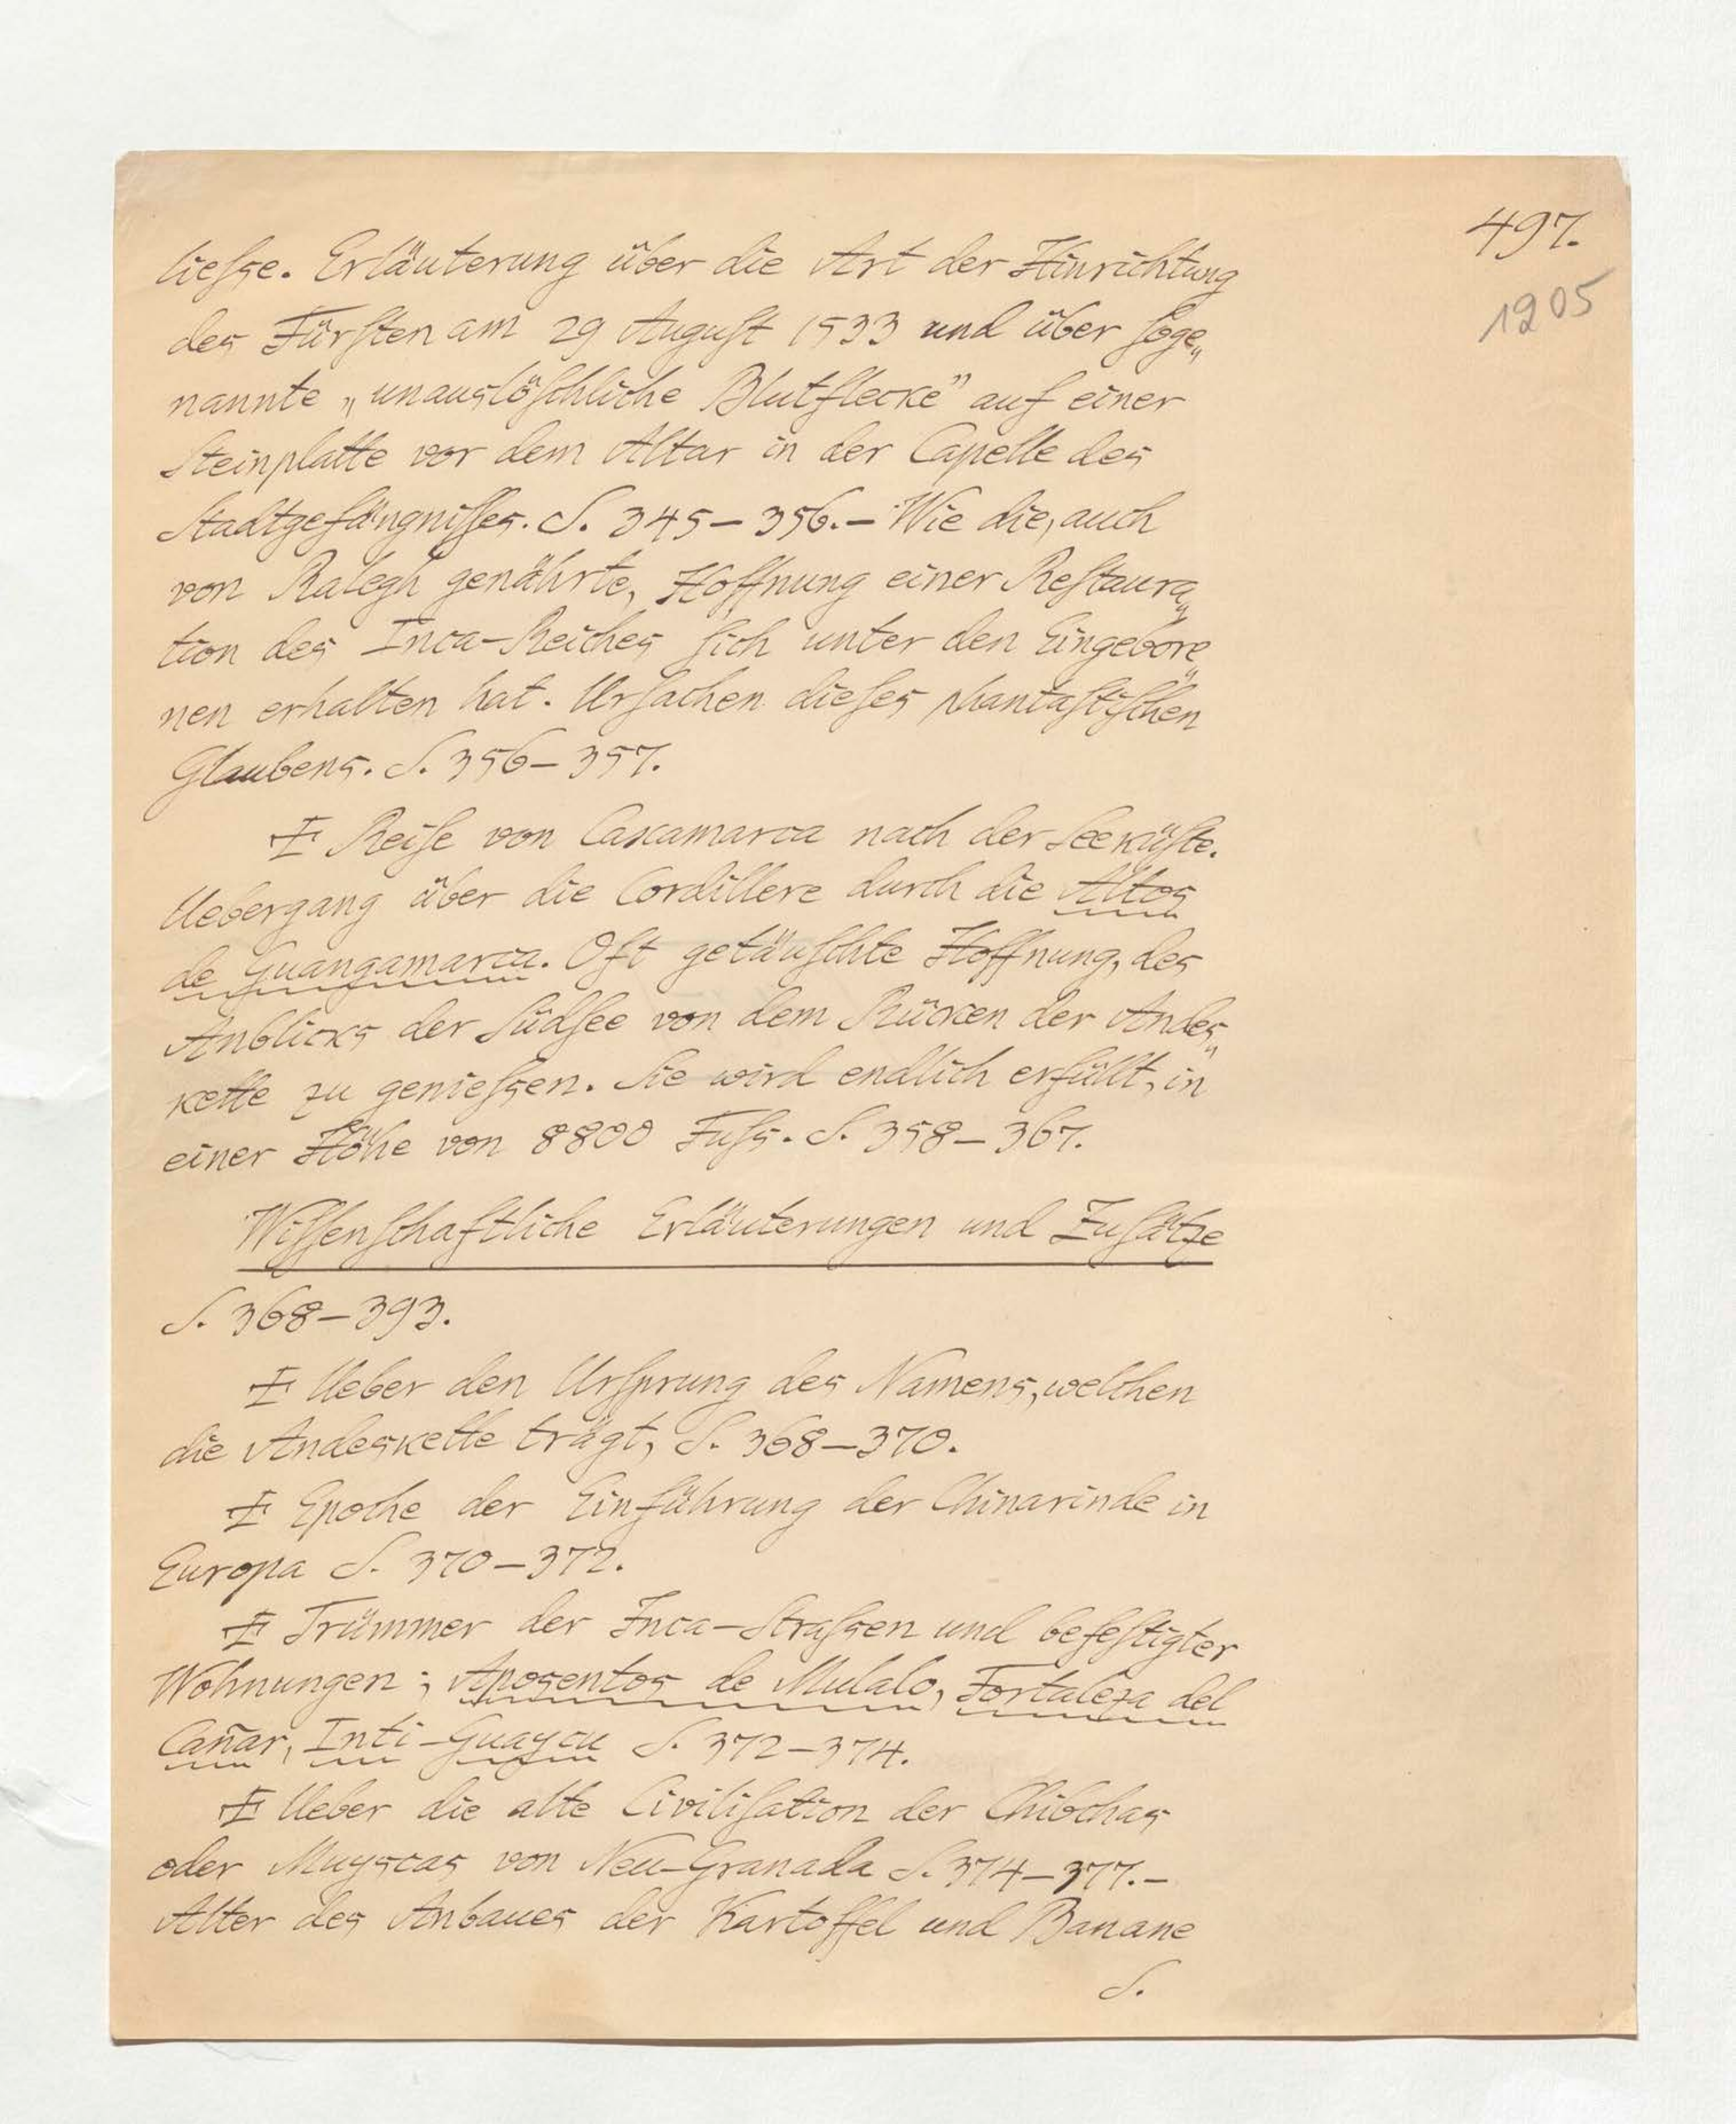 497.
1905
lieſse. Erläuterung über die Art der Hinrichtung
des Fürſten am 29 Auguſt 1533 und über ſoge„
nannte „unauslöſchliche Blutflecke” auf einer
Steinplatte vor dem Altar in der Capelle des
Stadtgefängniſſes. S. 345–356.– Wie die, auch
von Ralegh genährte, Hoffnung einer Reſtaura„
tion des Inca-Reiches ſich unter den Eingebore„
nen erhalten hat. Urſachen dieſes phantaſtiſchen
Glaubens. S. 356–357.
Reiſe von Caxamarca nach der Seeküſte.
Uebergang über die Cordillere durch die Altos
de Guangamarca. Oft getäuſchte Hoffnung, des
Anblicks der Südſee von dem Rücken der Andes„
kette zu genieſsen. Sie wird endlich erfüllt, in
einer Höhe von 8800 Fuſs. S. 358–367.
Wiſſenſchaftliche Erläuterungen und Zuſätze
S. 368–393.
Ueber den Urſprung des Namens, welchen
die Andeskette trägt, S. 368–370.
Epoche der Einführung der Chinarinde in
Europa S. 370–372.
Trümmer der Inca-Straſsen und befeſtigter
Wohnungen; Aposentos de Mulalo, Fortaleza del
Cañar, Inti-Guaycu S. 372–374.
Ueber die alte Civiliſation der Chibchas
oder Muyscas von Neu-Granada S. 374–377.–
Alter des Anbaues der Kartoffel und Banane
S.